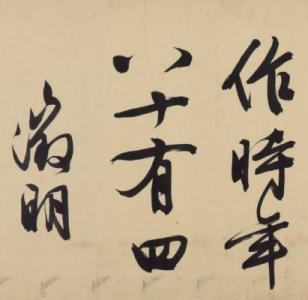 作時年
八十有四
徵明